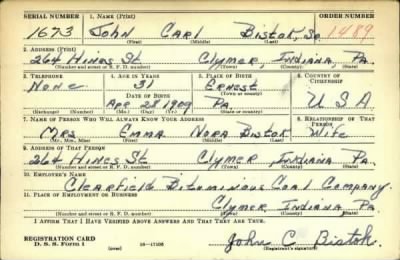 SERIAL NUMBER 1. NAME (Print) ORDER NUMBER
1673 John Carl Bistok, Sr. 1489
(First) (Middle) (Last)
2. ADDRESS (Print)
264 Hines St Clymer, Indiana, Pa.
(Number and street or R. F. D. number) (Town) (County) (State)
3. TELEPHONE 4. AGE IN YEARS 5. PLACE OF BIRTH 6. COUNTRY OF CITIZENSHIP
None 31 Ernest
DATE OF BIRTH (Town or county)
Apr 28 1909 Pa. U S A
(Exchange) (Number) (Mo.) (Day) (Yr.) (State or country)
7. NAME OF PERSON WHO WILL ALWAYS KNOW YOUR ADDRESS 8. RELATIONSHIP OF THAT PERSON
Mrs Emma Nora Bistok Wife
(Mr., Mrs., Miss) (First) (Middle) (Last)
9. ADDRESS OF THAT PERSON
264 Hines St Clymer Indiana Pa.
(Number and street or R. F. D. number) (Town) (County) (State)
10. EMPLOYER'S NAME
Clearfield Bituminous Coal Company.
11. PLACE OF EMPLOYMENT OR BUSINESS
Clymer Indiana Pa
(Number and street or R. F. D. number) (Town) (County) (State)
I AFFIRM THAT I HAVE VERIFIED ABOVE ANSWERS AND THAT THEY ARE TRUE.
REGISTRATION CARD
D. S. S. Form 1 (over) 16-17105
John C Bistok.
(Registrant's signature)